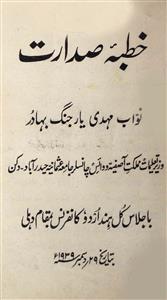 خطبۂ صدارت
نواب مہدی یار جنگ بہادر
وزیر تعلیمات مملکت آصفیہ و وائس چانسلر جامعہ عثمانیہ حیدرآباد ۔ دکن
باجلاس کل ہند اُردو کانفرنس بمقام دہلی
بتاریخ ۲۹ دسمبر ۱۹۳۹ء